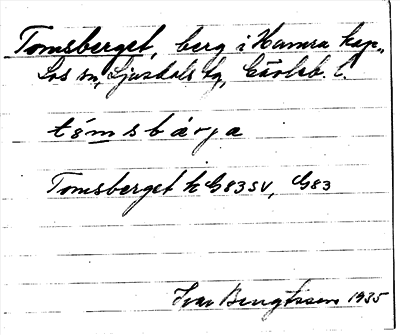 Tomsberget, berg i Hamra kap.,
Los sn, Ljusdals tg, Gävleb. l.
tömsbärja
Tomsberget k G83SV, G83
Ivar Bengtsson 1935